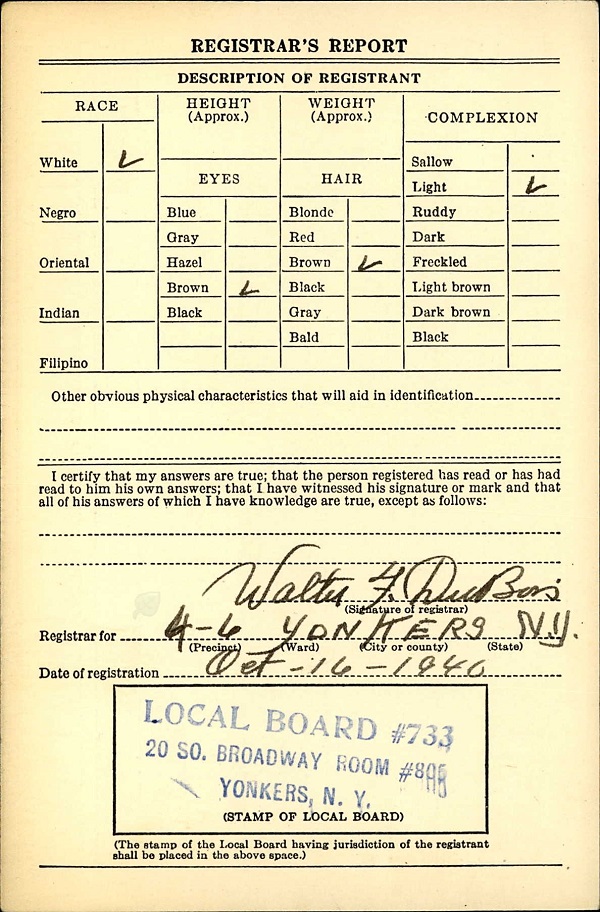 REGISTRAR'S REPORT
DESCRIPTION OF REGISTRANT
RACE
HEIGHT
(Approx.)
WEIGHT
(Approx.)
COMPLEXION
White ✓
Negro
Oriental
Indian
Filipino
EYES
Blue
Gray
Hazel
Brown ✓
Black
HAIR
Blonde
Red
Brown ✓
Black
Gray
Bald
Sallow
Light ✓
Ruddy
Dark
Freckled
Light brown
Dark brown
Black
Other obvious physical characteristics that will aid in identification
I certify that my answers are true; that the person registered has read or has had
read to him his own answers; that I have witnessed his signature or mark and that
all of his answers of which I have knowledge are true, except as follows:
Walter F. DuBois
(Signature of registrar)
Registrar for 4-6 YONKERS N.Y.
(Precinct) (Ward) (City or county) (State)
Date of registration Oct-16-1940
LOCAL BOARD #733
20 SO. BROADWAY ROOM
YONKERS, N. Y.
(STAMP OF LOCAL BOARD)
(The stamp of the Local Board having jurisdiction of the registrant
shall be placed in the above space.)